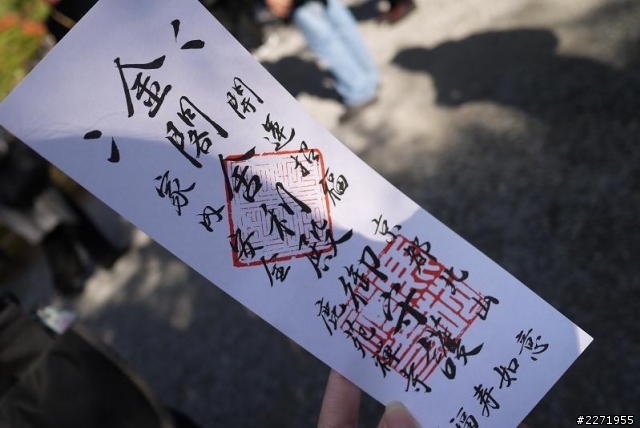 開運招福
金閣舎利殿御守護
家内安全
京都北山
鹿苑禅寺
福寿如意
#2271955